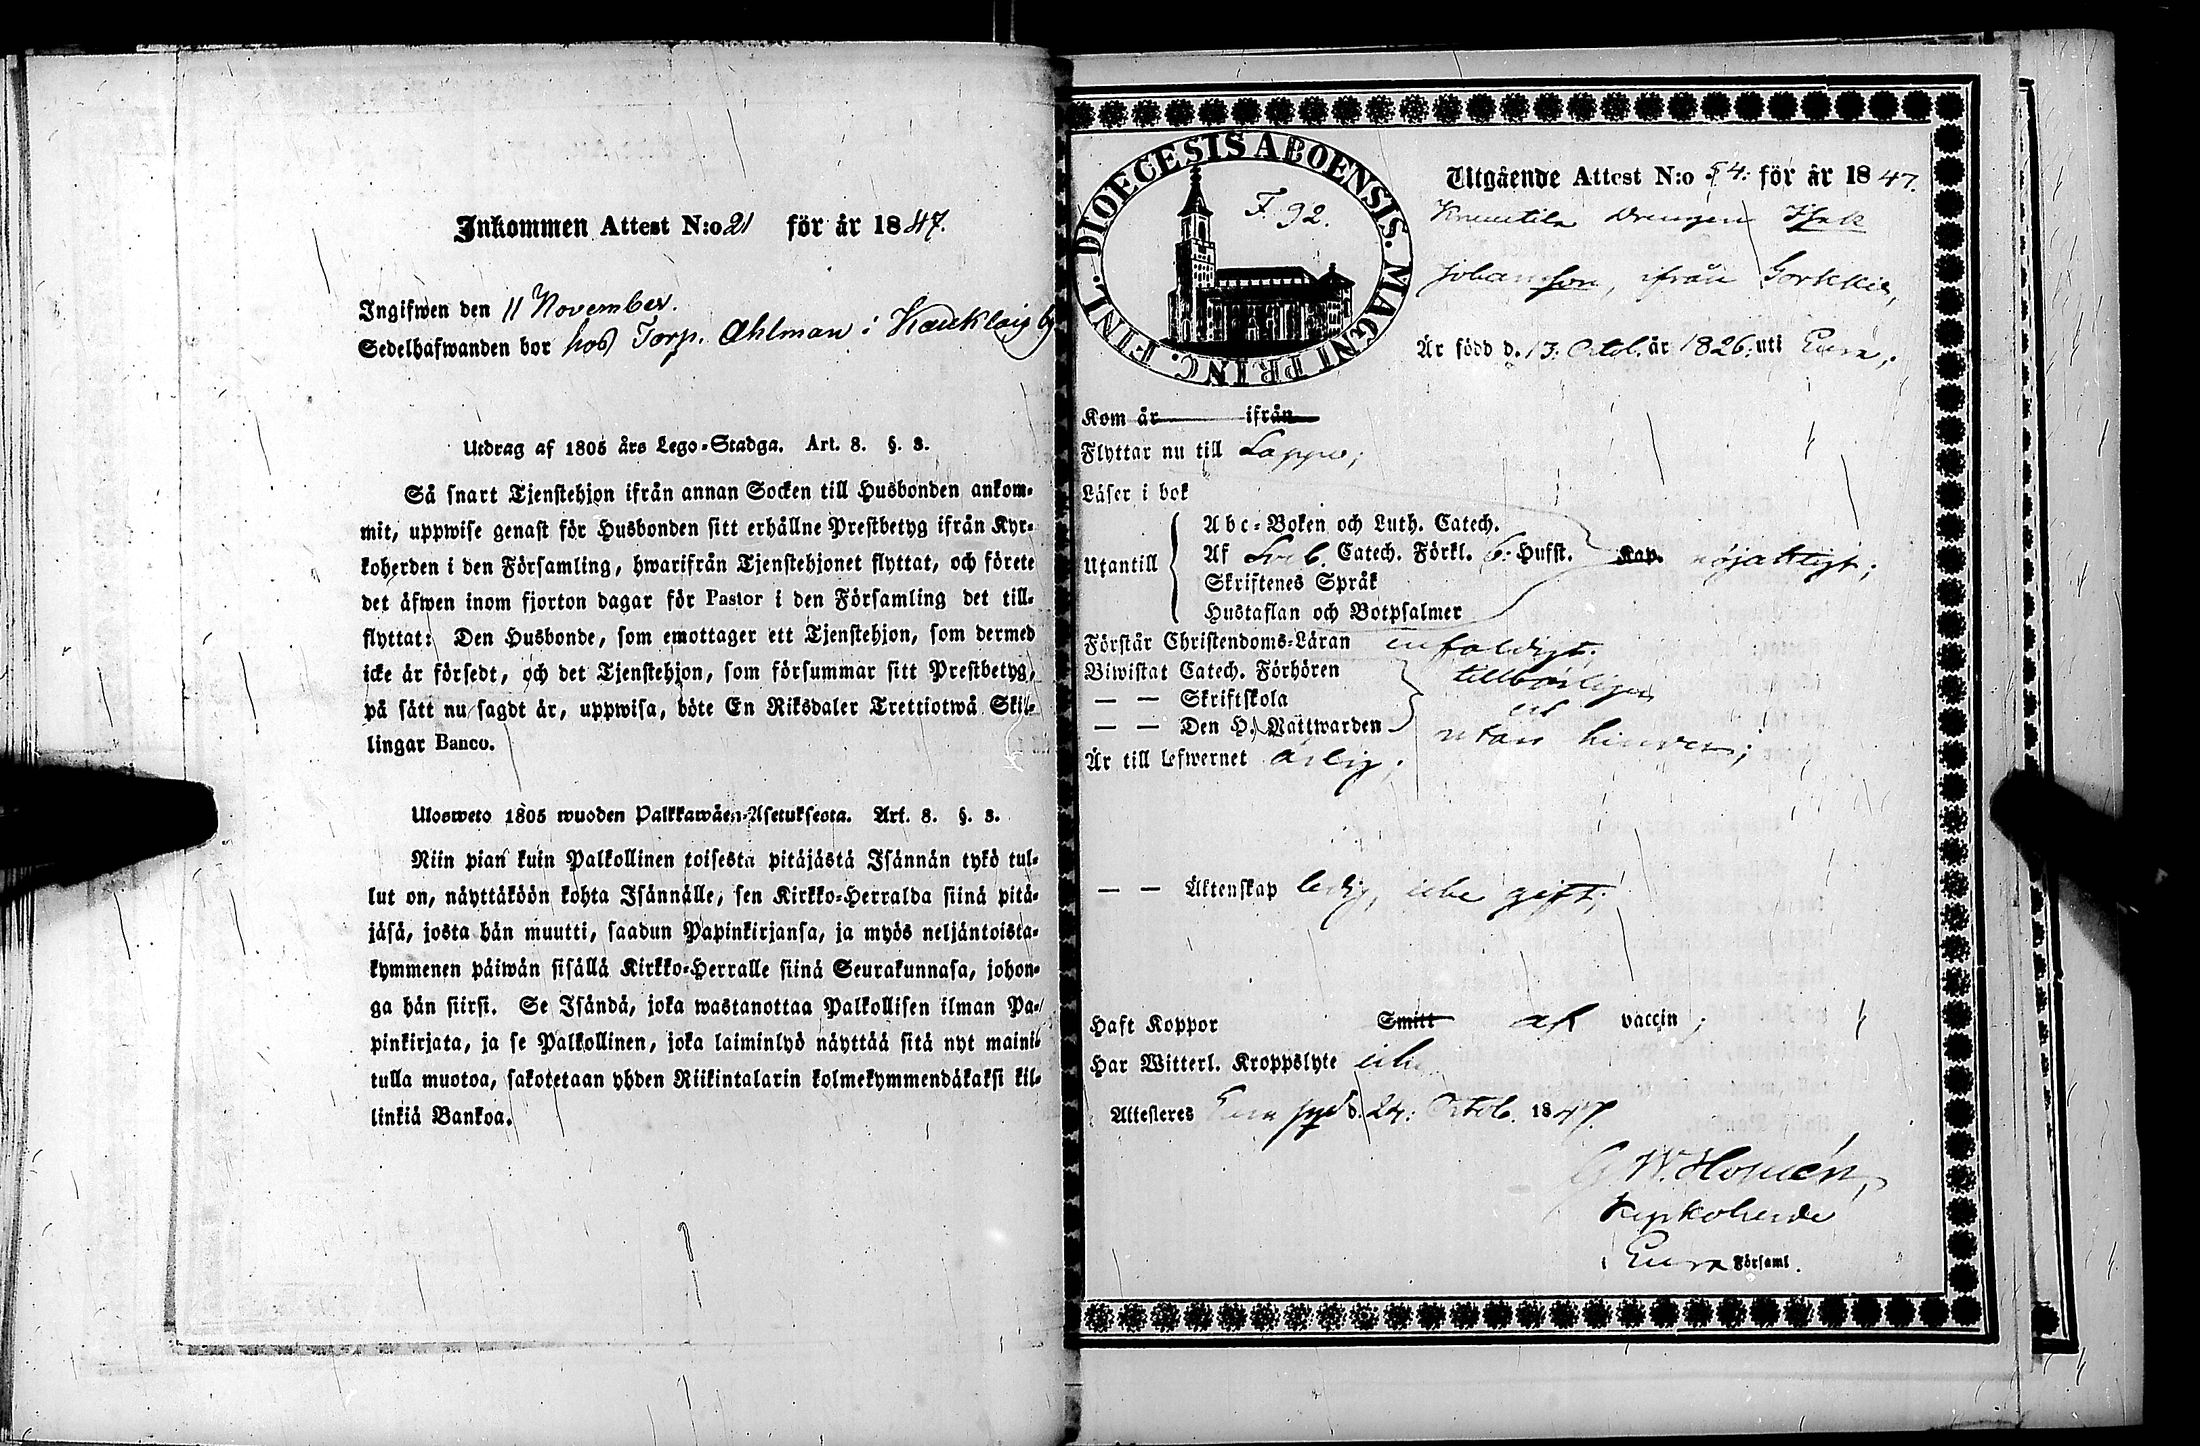 Inkommen Attest N:o 21 för år 1847.
Ingifwen den 11 November.
Sedelhafwanden bor hos Torp. Ahlman i Kauklaig by
Utdrag af 1805 års Lego-Stadga. Art. 8. §. 3.
Så snart Tjenstehjon ifrån annan Socken till Husbonden ankom-
mit, uppwise genast för Husbonden sitt erhållne Prestbetyg ifrån Kyr-
koherden i den Församling, hwarifrån Tjenstehjonet flyttat, och förete
det äfwen inom fjorton dagar för Pastor i den Församling det till-
flyttat: Den Husbonde, som emottager ett Tjenstehjon, som dermed
icke är försedt, och det Tjenstehjon, som försummar sitt Prestbetyg,
på sätt nu sagdt är, uppwisa, böte En Riksdaler Trettiotwå Skil-
lingar Banco.
Ulosweto 1805 wuoden Palkkawäen-Asetuksesta. Art. 8. §. 3.
Niin pian kuin Palkollinen toisesta pitäjästä Isännän tykö tul-
lut on, näyttäköön kohta Isännälle, sen Kirkko-Herralda siinä pitä-
jäsä, josta hän muutti, saadun Papinkirjansa, ja myös neljäntoista-
kymmenen päiwän sisällä Kirkko-Herralle siinä Seurakunnasa, johon-
ga hän siirsi. Se Isändä, joka wastanottaa Palkollisen ilman Pa-
pinkirjata, ja se Palkollinen, joka laiminlyö näyttää sitä nyt maini-
tulla muotoa, sakotetaan yhden Riikintalarin kolmekymmendäkaksi kil-
linkiä Bankoa.
DIOECESIS ABOENSIS. MAGNI PRINC. FINL.
F. 92.
Utgående Attest N:o 54: för år 1847.
Drengen Isak
Johansson, ifrån
Är född d. 13. Octob. år 1826. uti Eura;
Kom år ifrån
Flyttar nu till Lappo;
Läser i bok
Utantill
Abc-Boken och Luth. Catech.
Af Sveb. Catech. Förkl. 6. Hufst. Kap. nöjaktigt;
Skriftenes Språk
Hustaflan och Botpsalmer
Förstår Christendoms-Läran enfaldigt;
Biwistat Catech. Förhören tillbörligen
— — Skriftskola
— — Den H. Nattwarden utan hinder;
Är till lefwernet ärlig;
— — Äktenskap ledig, icke gift;
Haft Koppor Smitt af vaccin;
Har Witterl. Kroppslyte icke
Attesteres Eura d. 24: Octob. 1847.
G. W. Homén,
Kyrkoherde
i Eura Församl.